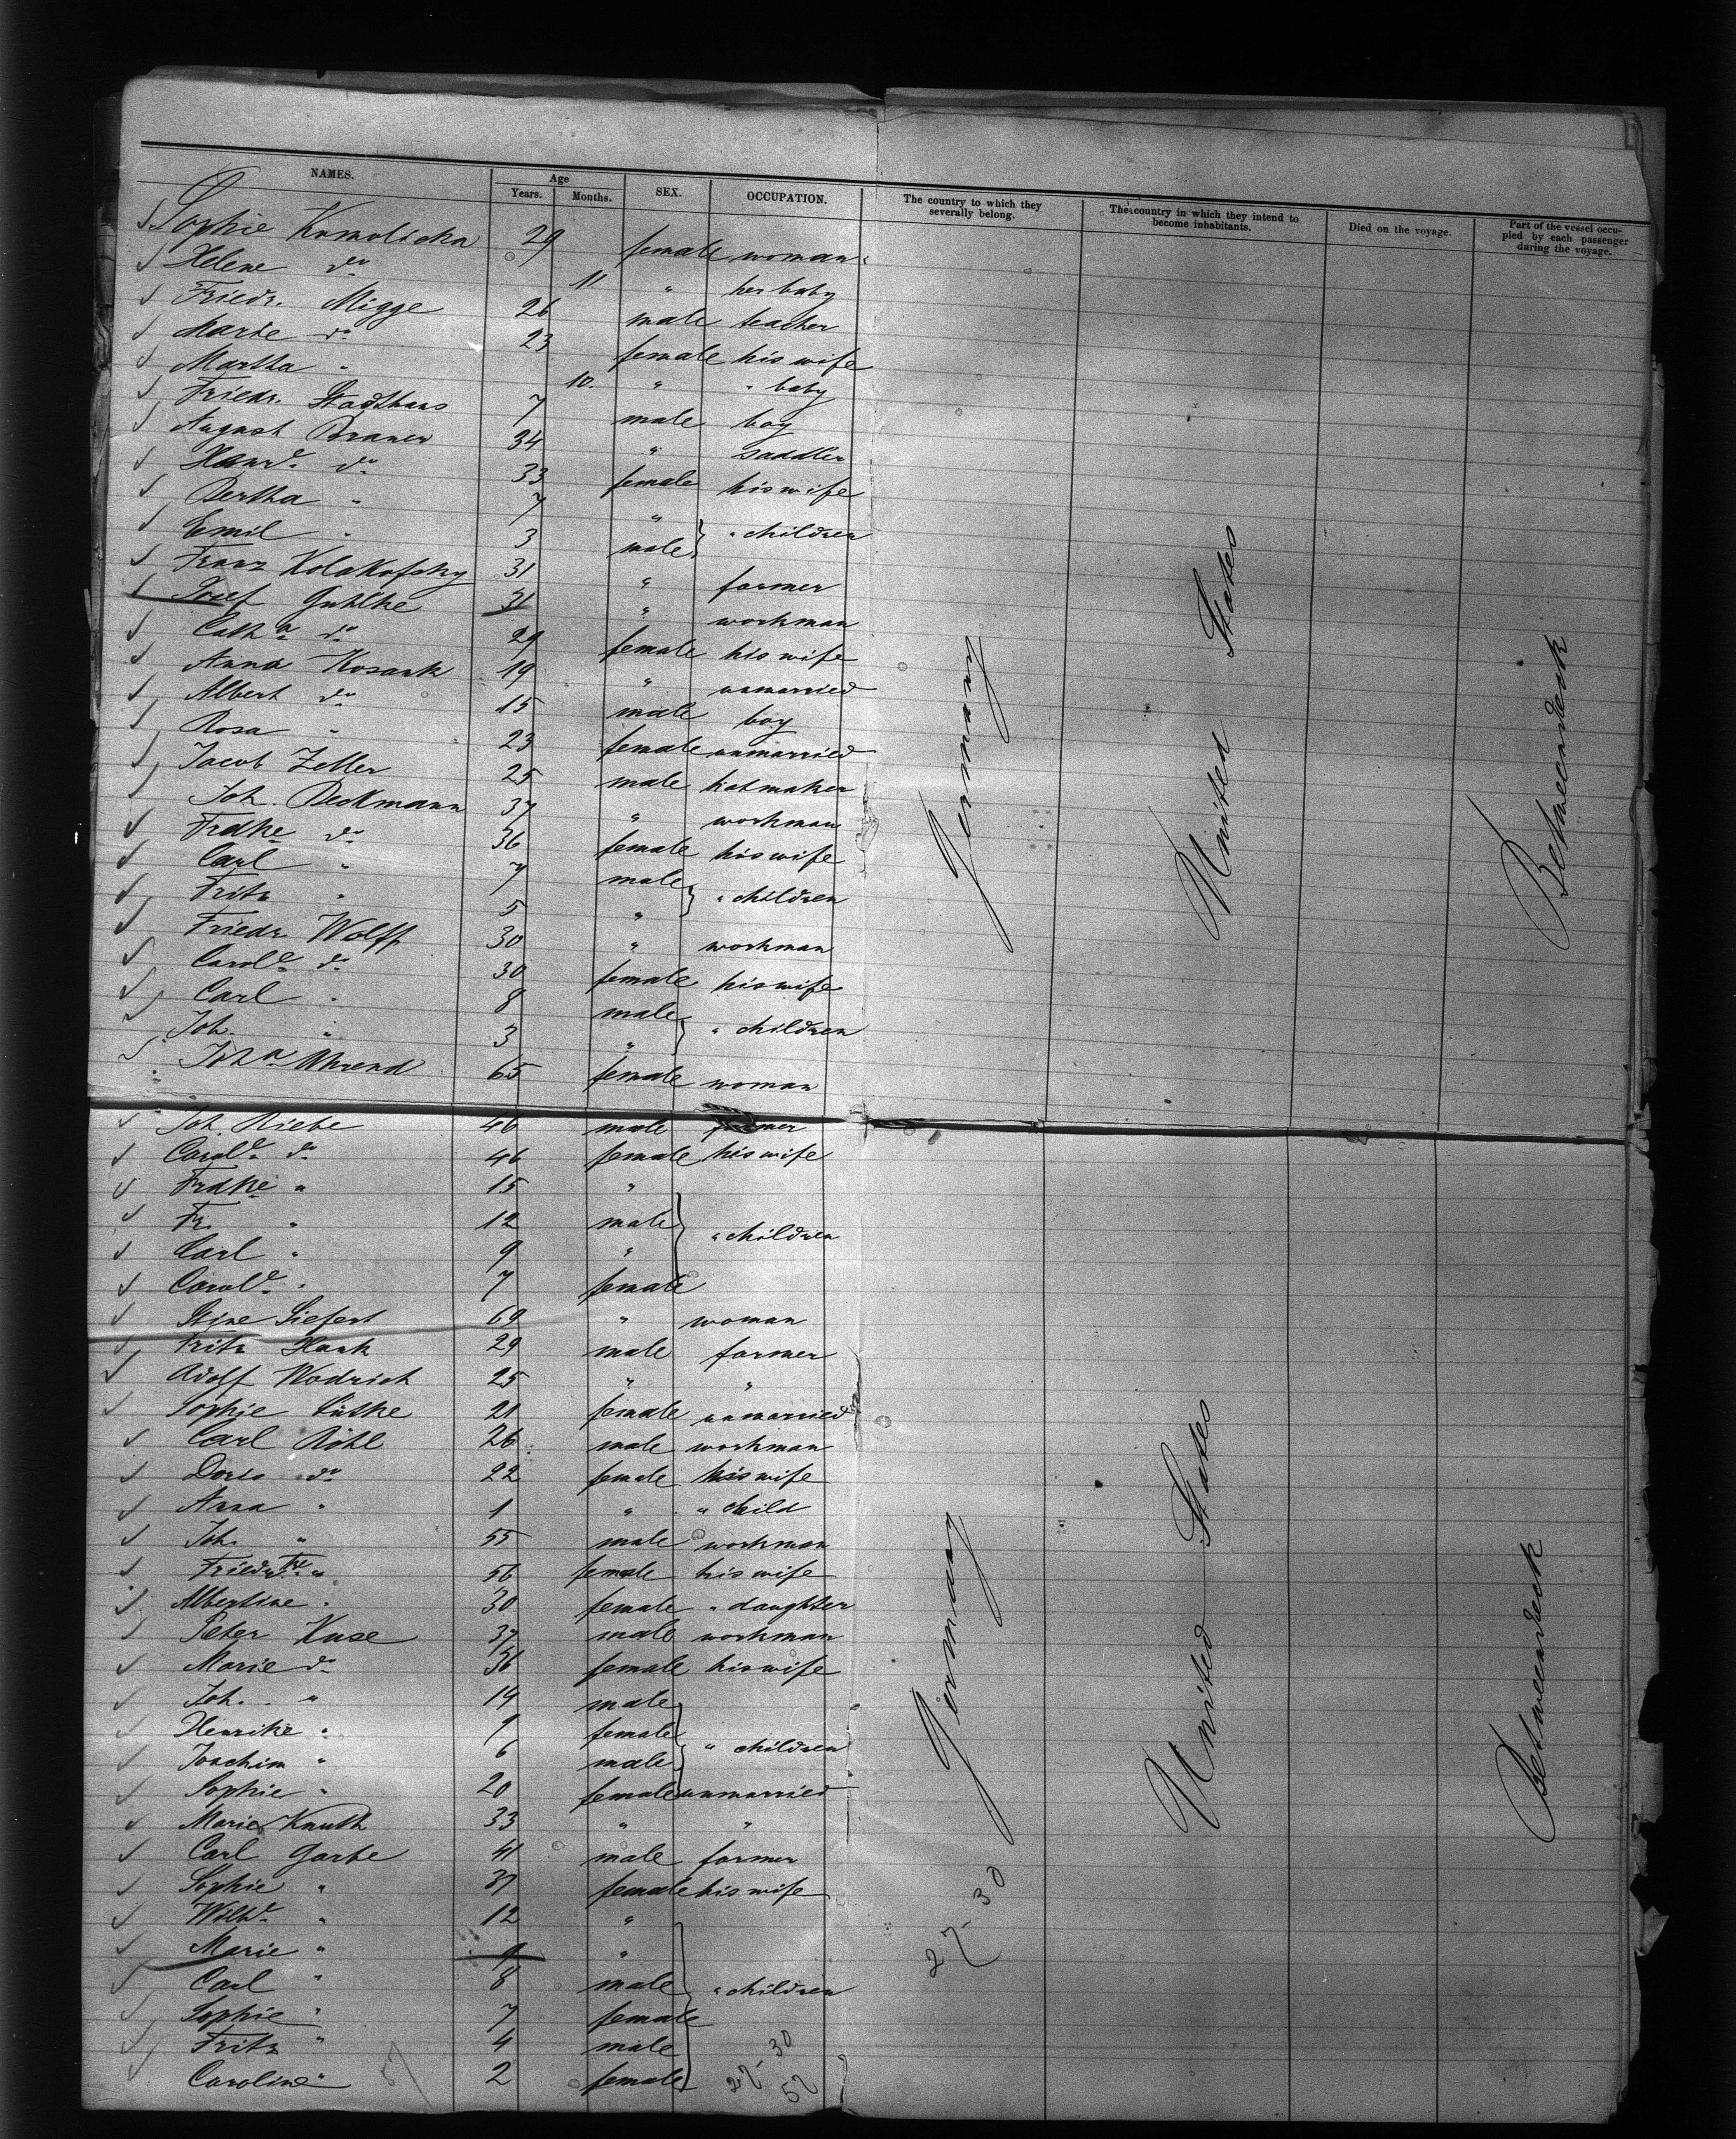 NAMES. Age SEX. OCCUPATION. The country to which they severally belong. The country in which they intend to become inhabitants. Died on the voyage. Part of the vessel occupied by each passenger during the voyage.
Years. Months.
Sophie Komolicka 29 female woman
Helene do 11 " her baby
Friedr. Migge 26 male teacher
Marie do 23 female his wife
Martha " 10. " " baby
Friedr. Stadthaus 7 male boy
August Braner 34 " saddler
Hanrе do 33 female his wife
Bertha " 7 " " children
Emil " 3 male
Franz Kolakofsky 31 " farmer
Josef Guhlke 31 " workman
Catha do 29 female his wife
Anna Kosank 19 " unmarried
Albert do 15 male boy
Rosa " 23 female unmarried
Jacob Zeller 25 male hatmaker
Joh. Beckmann 37 " workman
Frdke do 36 female his wife
Carl " 7 male " children
Fritz " 5 "
Friedr. Wolff 30 " workman
Carole do 30 female his wife
Carl " 8 male " children
Joh. " 3 "
Joha Ahrend 65 female woman
Germany United States Betweendeck
Joh. Riebe 46 male farmer
Carole do 46 female his wife
Frdke " 15 "
Fr. " 12 male " children
Carl " 9 "
Carole " 7 female
Stine Siefert 69 " woman
Fritz Hank 29 male farmer
Adolf Wodrich 25 " "
Sophie Lütke 21 female unmarried
Carl Röhl 26 male workman
Doris do 22 female his wife
Anna " 1 " " child
Joh. " 55 male workman
Friedrke " 56 female his wife
Albertine " 30 female " daughter
Peter Kuse 37 male workman
Marie do 36 female his wife
Joh. " 14 male
Henrike " 9 female " children
Joachim " 6 male
Sophie " 20 female unmarried
Marie Knuth 33 " "
Carl Garbe 41 male farmer
Sophie " 37 female his wife
Wilhe " 12 "
Marie " 9 "
Carl " 8 male " children
Sophie " 7 female
Fritz " 4 male
Caroline " 2 female
Germany United States Betweendeck
27-30
27-30
57
57